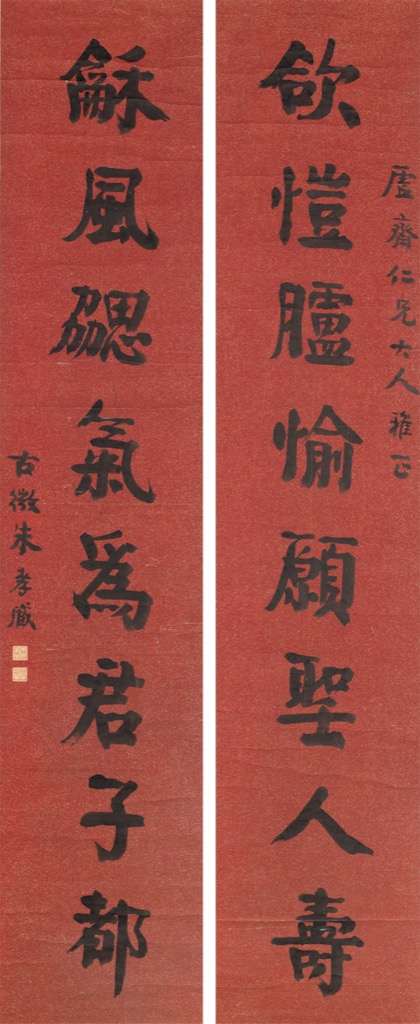 虛齋仁兄大人雅正
欱愷臚愉願聖人壽
龢風勰氣爲君子都
古微朱孝臧